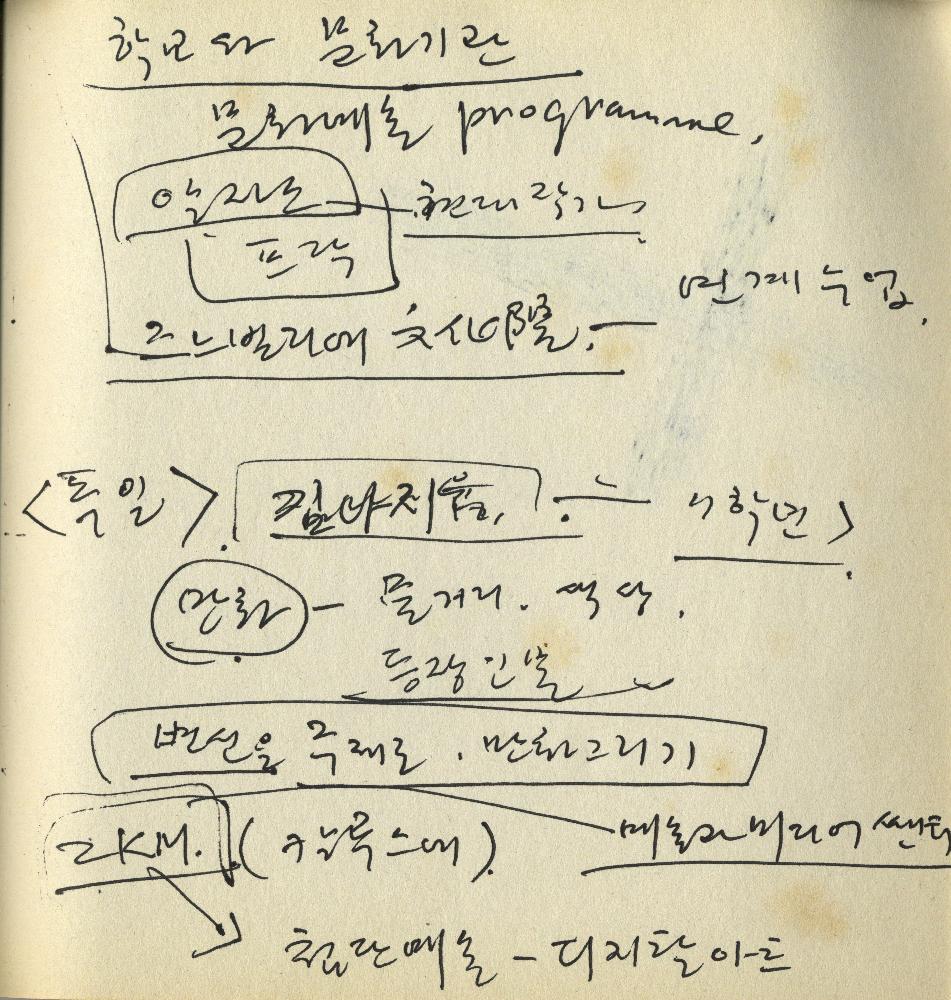 학교와 문화기관
문화예술 programme,
악사는 현대작가
프락
그느벌리에 文化院. 연계수업.
<독일>. 김나지움. 7학년>
만화 - 줄거리. 색상.
등장인물
변신을 주제로. 만화그리기
ZKM. (칼룩스에) 예술과 미디어 쎈터
첨단예술 - 디지탈아트